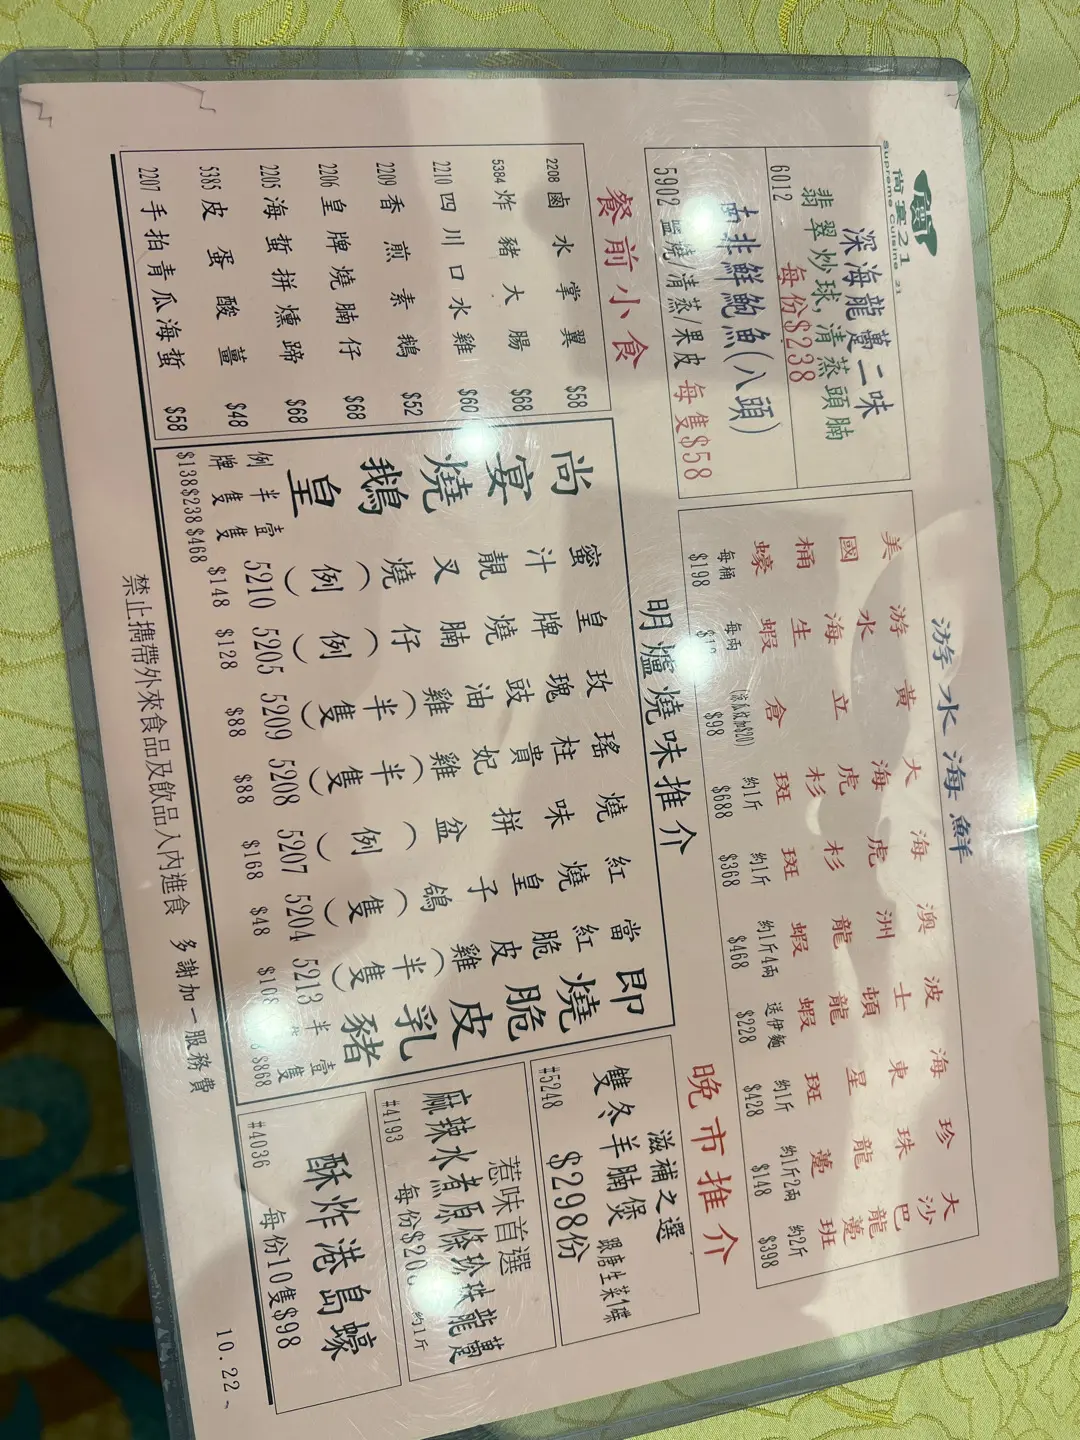 尚宴21
Supreme Cuisine 21
深海龍躉二味
翡翠炒球,清蒸頭腩
6012 每份$238
南非鮮鮑魚(八頭)
5902 鹽燒/清蒸/果皮 每隻$58
游水海鮮
美國桶蠔 每桶 $198
游水海生蝦 每兩
黃立倉 $98
大海虎杉斑 約1斤 $688
海虎杉斑 約1斤 $368
澳洲龍蝦 約1斤4兩 $468
波士頓龍蝦 送伊麵 $228
海東星斑 約1斤 $428
珍珠龍躉 約1斤2兩 $148
大沙巴龍躉班 約2斤 $398
餐前小食
2208 鹵水掌翼 $58
5384 炸豬大腸 $68
2210 四川口水雞 $60
2209 香煎素鵝 $52
2206 皇牌燒腩仔 $68
2205 海蜇拼燻蹄 $68
5385 皮蛋酸薑 $48
2207 手拍青瓜海蜇 $58
明爐燒味推介
尚宴燒鵝皇
例牌 $138
半隻 $238
壹隻 $468
蜜汁靚叉燒(例) 5210 $148
皇牌燒腩仔(例) 5205 $128
玫瑰豉油雞(半隻) 5209 $88
瑤柱貴妃雞(半隻) 5208 $88
燒味拼盆(例) 5207 $168
紅燒皇子鴿(隻) 5204 $48
當紅脆皮雞(半隻) 5213 $108
即燒脆皮乳豬
半
壹隻 $868
晚市推介
滋補之選
雙冬羊腩煲 跟唐生菜1碟
#5248 $298份
惹味首選
麻辣水煮原條珍珠龍躉
#4193 每份$208 約1斤
酥炸港島蠔
#4036 每份10隻$98
禁止攜帶外來食品及飲品入內進食 多謝加一服務費
10.22